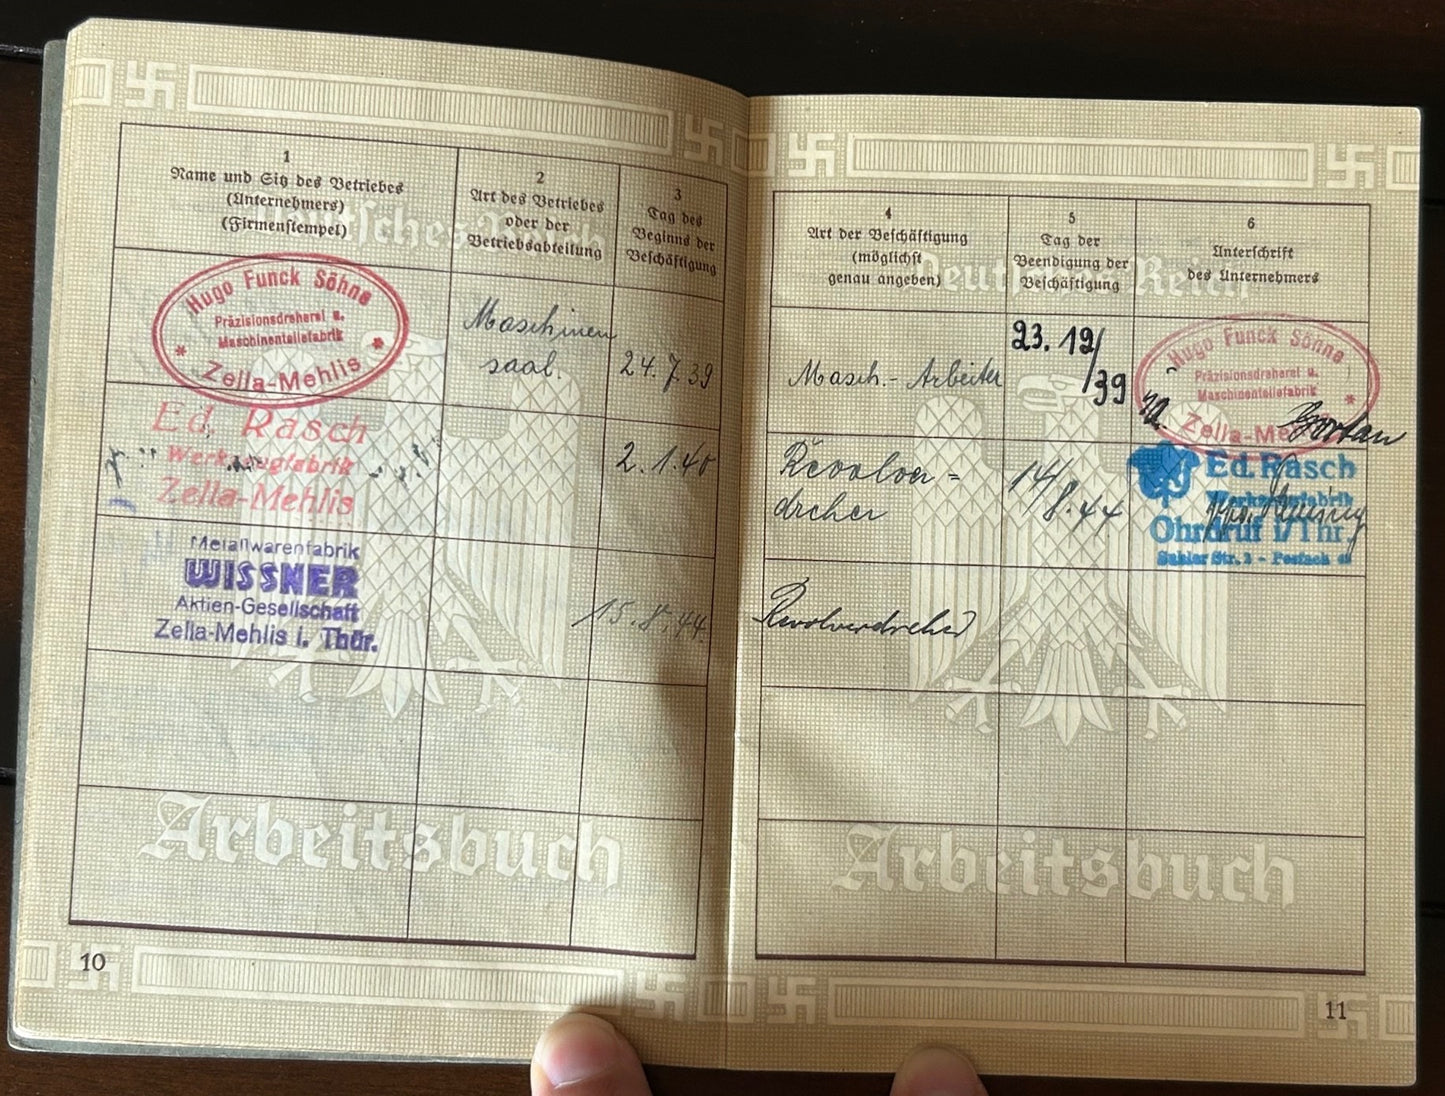 1
Name und Sitz des Betriebes
(Unternehmers)
(Firmenstempel)
2
Art des Betriebes
oder der
Betriebsabteilung
3
Tag des
Beginns der
Beschäftigung
Deutsches Reich
Hugo Funck Söhne
Präzisionsdreherei u.
Maschinenteilefabrik
* Zella-Mehlis *
Maschinen
saal.
24.7.39
Ed. Rasch
Werkzeugfabrik
Zella-Mehlis
2.1.40
Metallwarenfabrik
WISSNER
Aktien-Gesellschaft
Zella-Mehlis i. Thür.
15.8.44
Arbeitsbuch
10
4
Art der Beschäftigung
(möglichst
genau angeben)
5
Tag der
Beendigung der
Beschäftigung
6
Unterschrift
des Unternehmers
Deutsches Reich
Masch.-Arbeiter
23.12/
/39
Hugo Funck Söhne
Präzisionsdreherei u.
Maschinenteilefabrik
Zella-Mehlis *
Revolver=
dreher
14/8.44
Ed. Rasch
Werkzeugfabrik
Ohrdruf i/Thr.
Suhler Str. 3 - Postfach
Revolverdreher
Arbeitsbuch
11